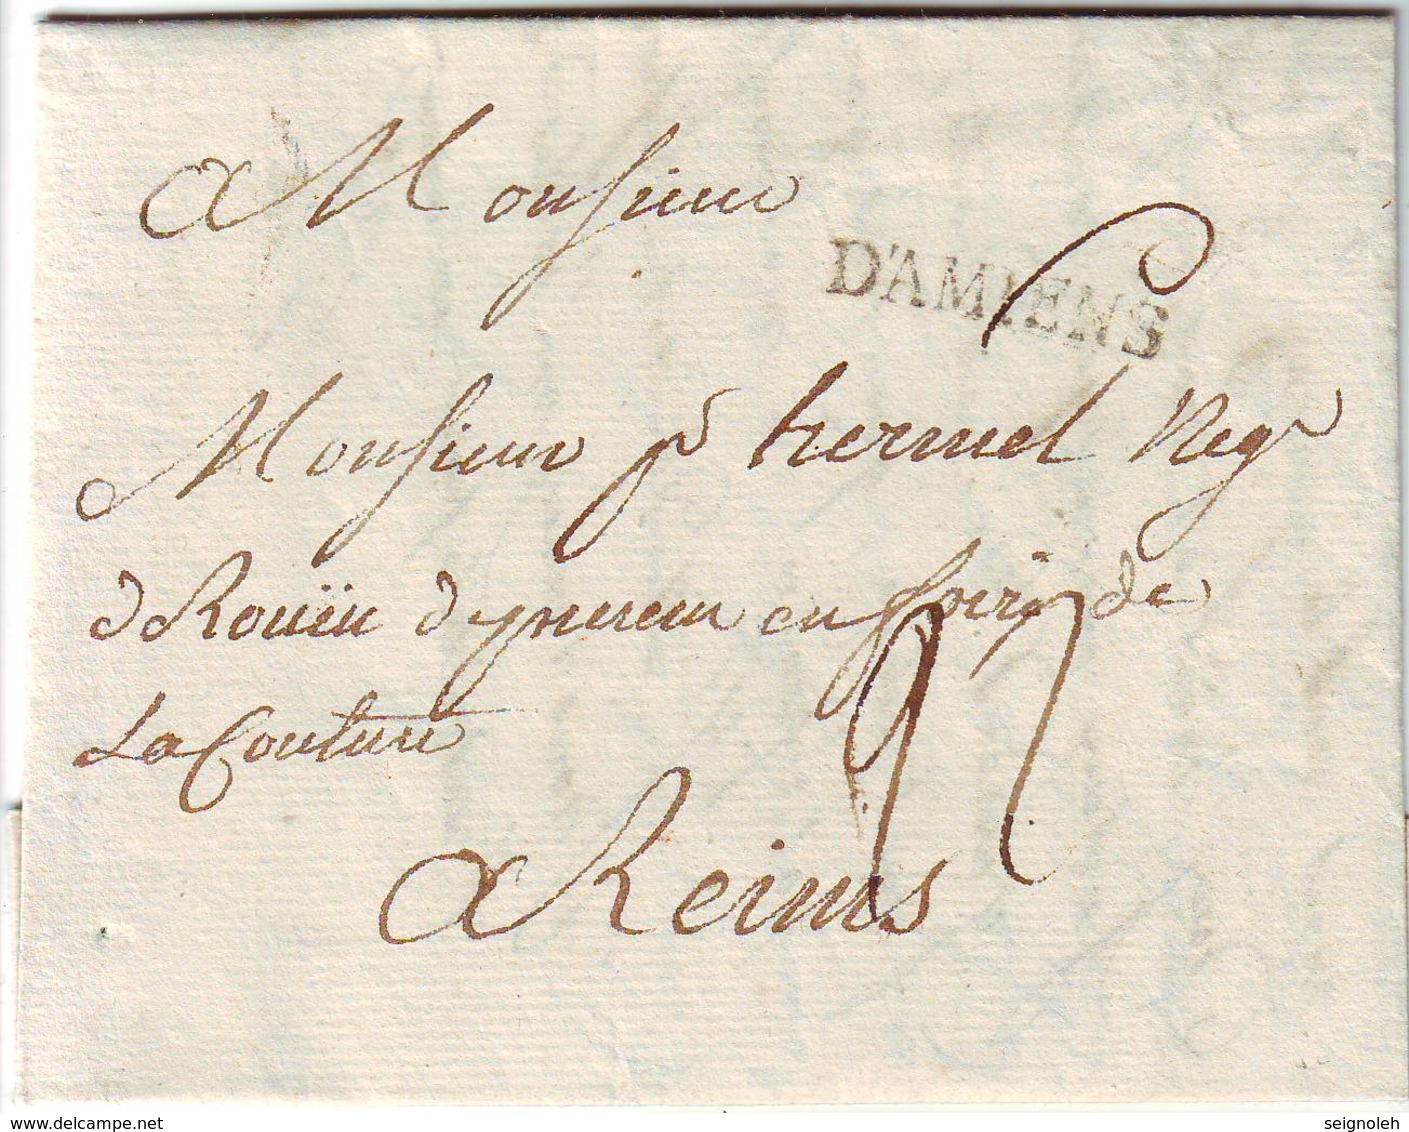 A Monsieur
D'AMIENS
Monsieur pr hermel Negr
d Rouën d en foire de
La Couture
A Reims
www.delcampe.net
seignoleh